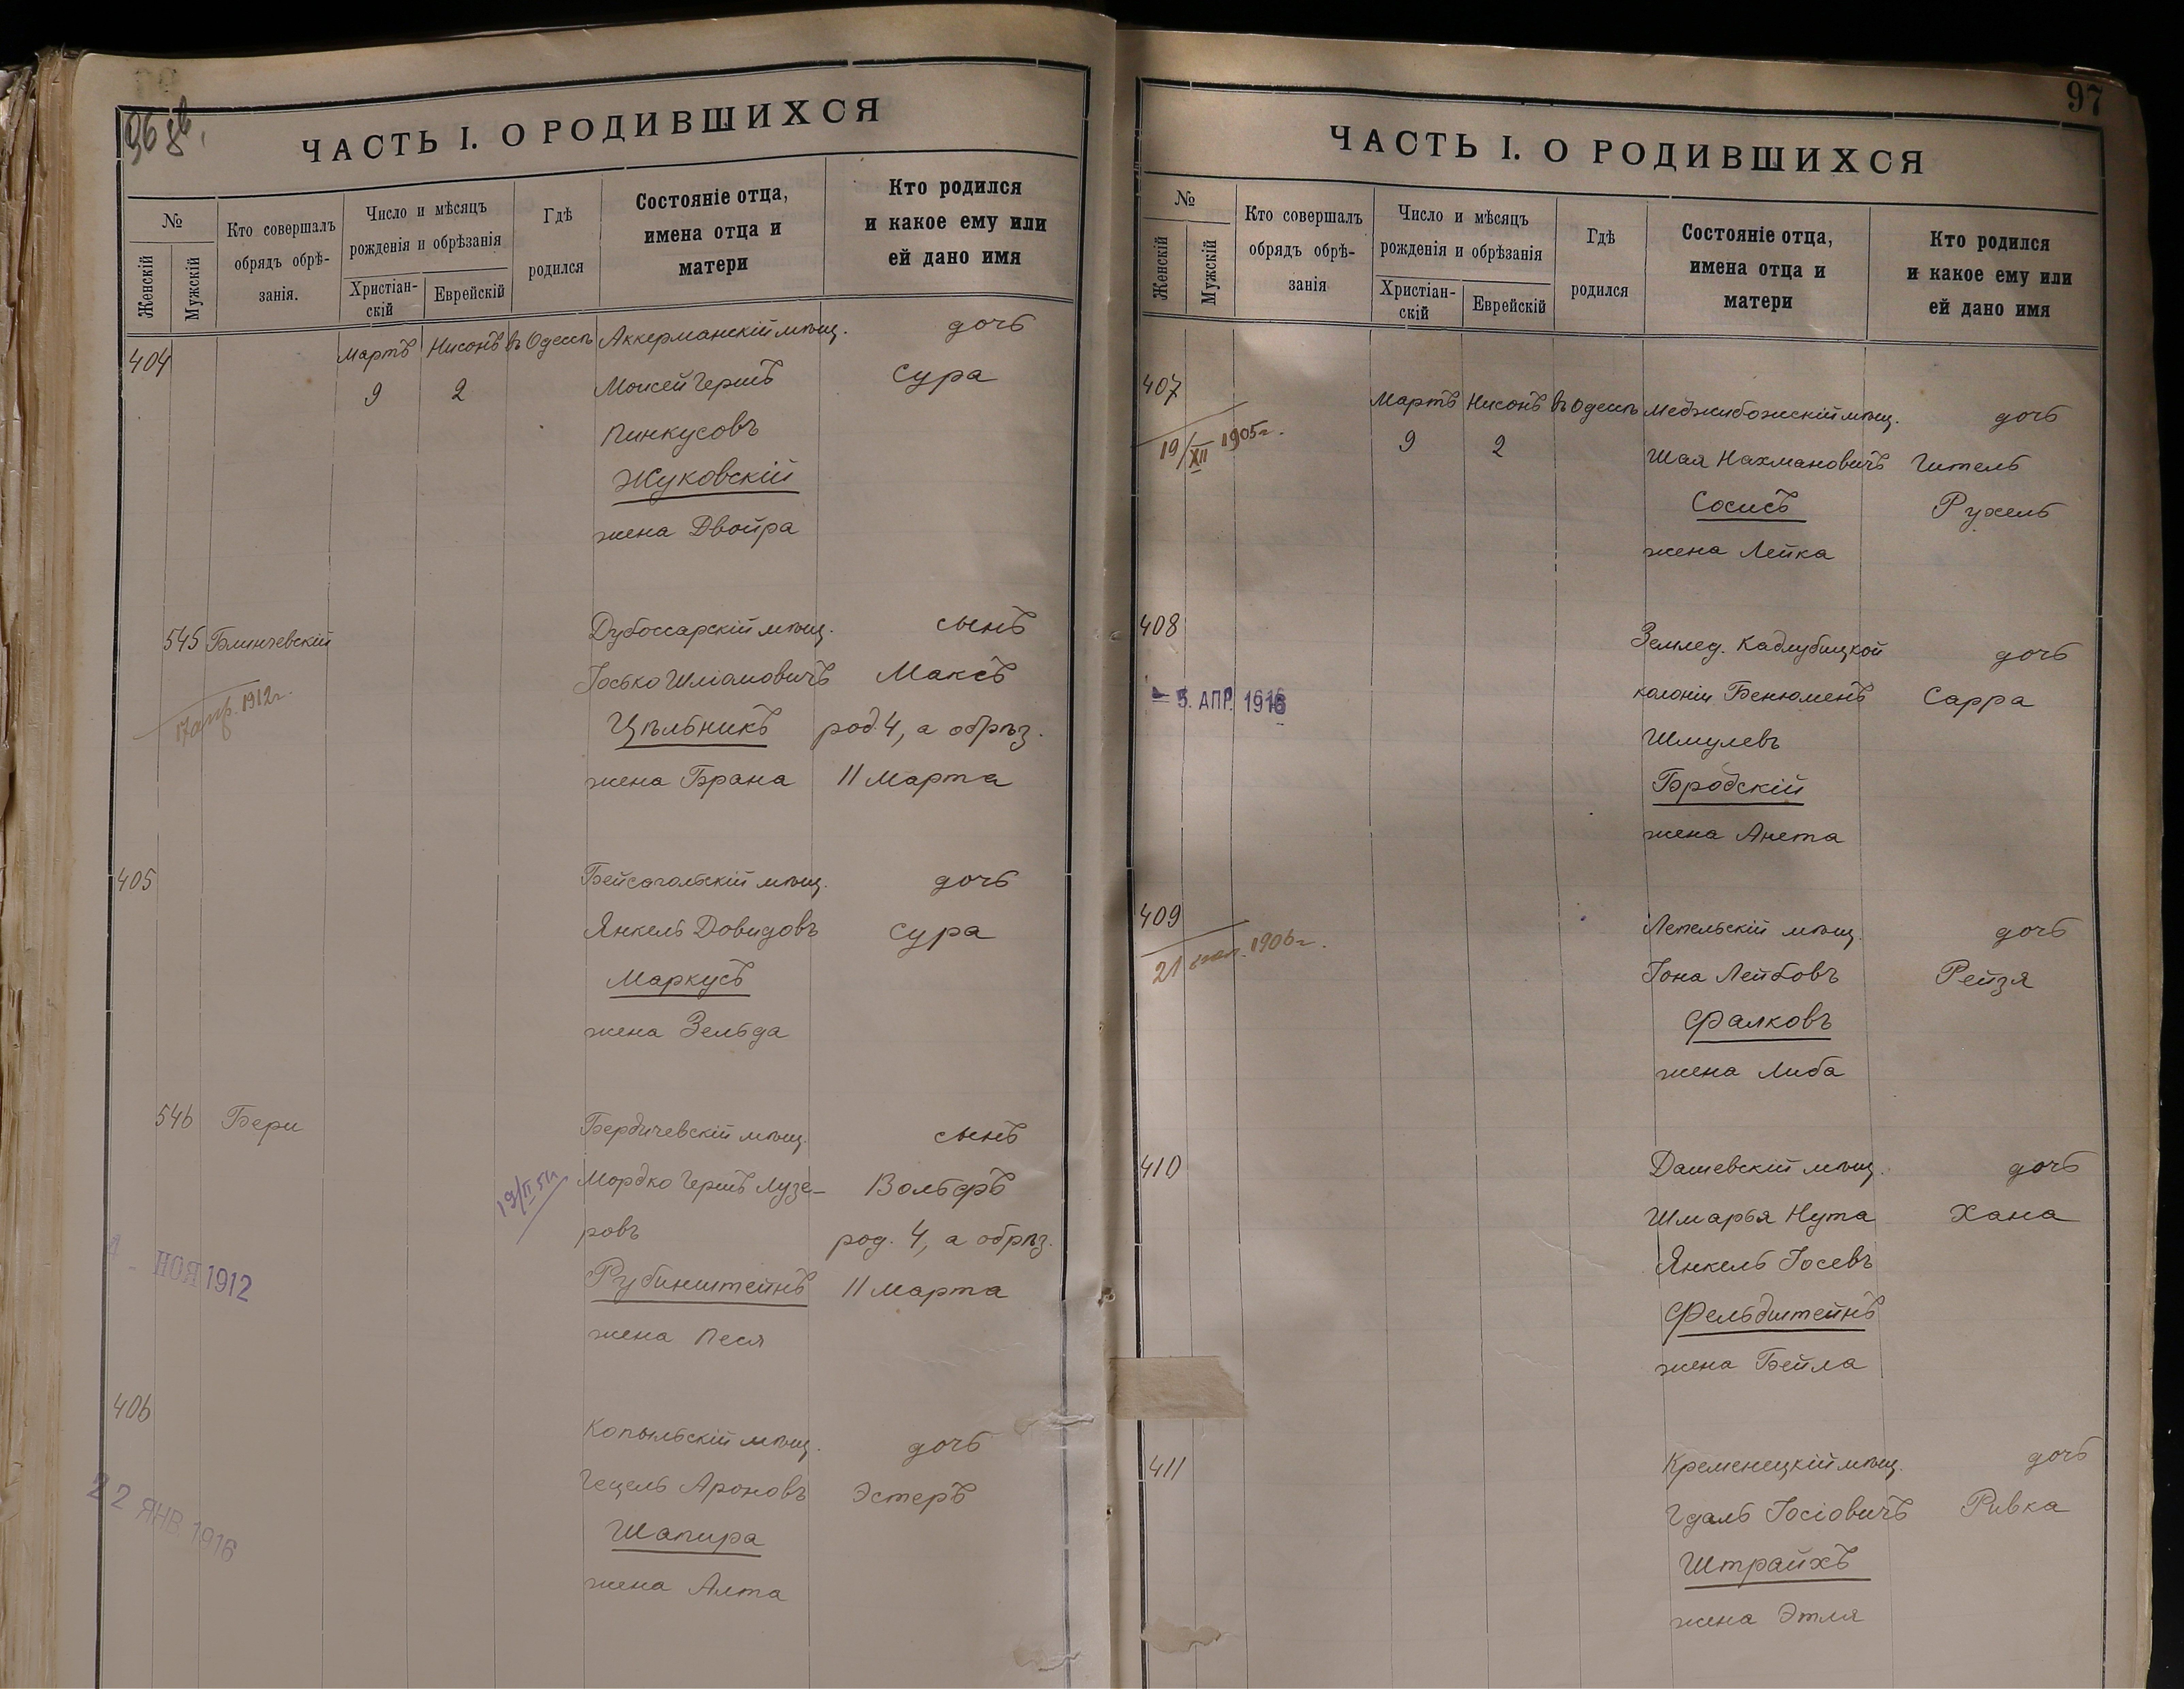 96 об.
ЧАСТЬ I. О РОДИВШИХСЯ
№
Женскій
Мужскій
Кто совершалъ
обрядъ обрѣ-
занія.
Число и мѣсяцъ
рожденія и обрѣзанія
Христіан-
скій
Еврейскій
Гдѣ
родился
Состояніе отца,
имена отца и
матери
Кто родился
и какое ему или
ей дано имя
404 Мартъ Нисонъ въ Одессѣ Аккерманскій мѣщ. дочь
9 2 Моисей Гершъ Сура
Пинкусовъ
Жуковскій
жена Двойра
545 Блинчевскій Дубоссарскій мѣщ. сынъ
17 апр. 1912 г. Іосько Шліомовичъ Максъ
Цѣльникъ род. 4, а обрѣз.
жена Брана 11 Марта
405 Бейсагольскій мѣщ. дочь
Янкель Довидовъ Сура
Маркусъ
жена Зельда
546 Бери Бердичевскій мѣщ. сынъ
19/II 51 Мордко Гершъ Лузе- Вольфъ
ровъ род. 4, а обрѣз.
НОЯ 1912 Рубинштейнъ 11 Марта
жена Песя
406 Копыльскій мѣщ. дочь
22 ЯНВ. 1916 Гецель Ароновъ Эстеръ
Шапира
жена Алта
97
ЧАСТЬ I. О РОДИВШИХСЯ
№
Женскій
Мужскій
Кто совершалъ
обрядъ обрѣ-
занія
Число и мѣсяцъ
рожденія и обрѣзанія
Христіан-
скій
Еврейскій
Гдѣ
родился
Состояніе отца,
имена отца и
матери
Кто родился
и какое ему или
ей дано имя
407 Мартъ Нисонъ въ Одессѣ Меджибожскій мѣщ. дочь
19/XII 1905 г. 9 2 Шая Нахмановичъ Гитель
Сосисъ Рухель
жена Лейка
408 Землед. Кадлубицкой дочь
5. АПР. 1916 колоніи Бенюменъ Сарра
Шмулевъ
Бродскій
жена Анета
409 Лепельскій мѣщ. дочь
21 1906 г. Іона Лейбовъ Рейзя
Фалковъ
жена Либа
410 Дашевскій мѣщ. дочь
Шмарья Нута Хана
Янкель Іосевъ
Фельдштейнъ
жена Бейла
411 Кременецкій мѣщ. дочь
Гдаль Іосіовичъ Ривка
Штрайхъ
жена Этля